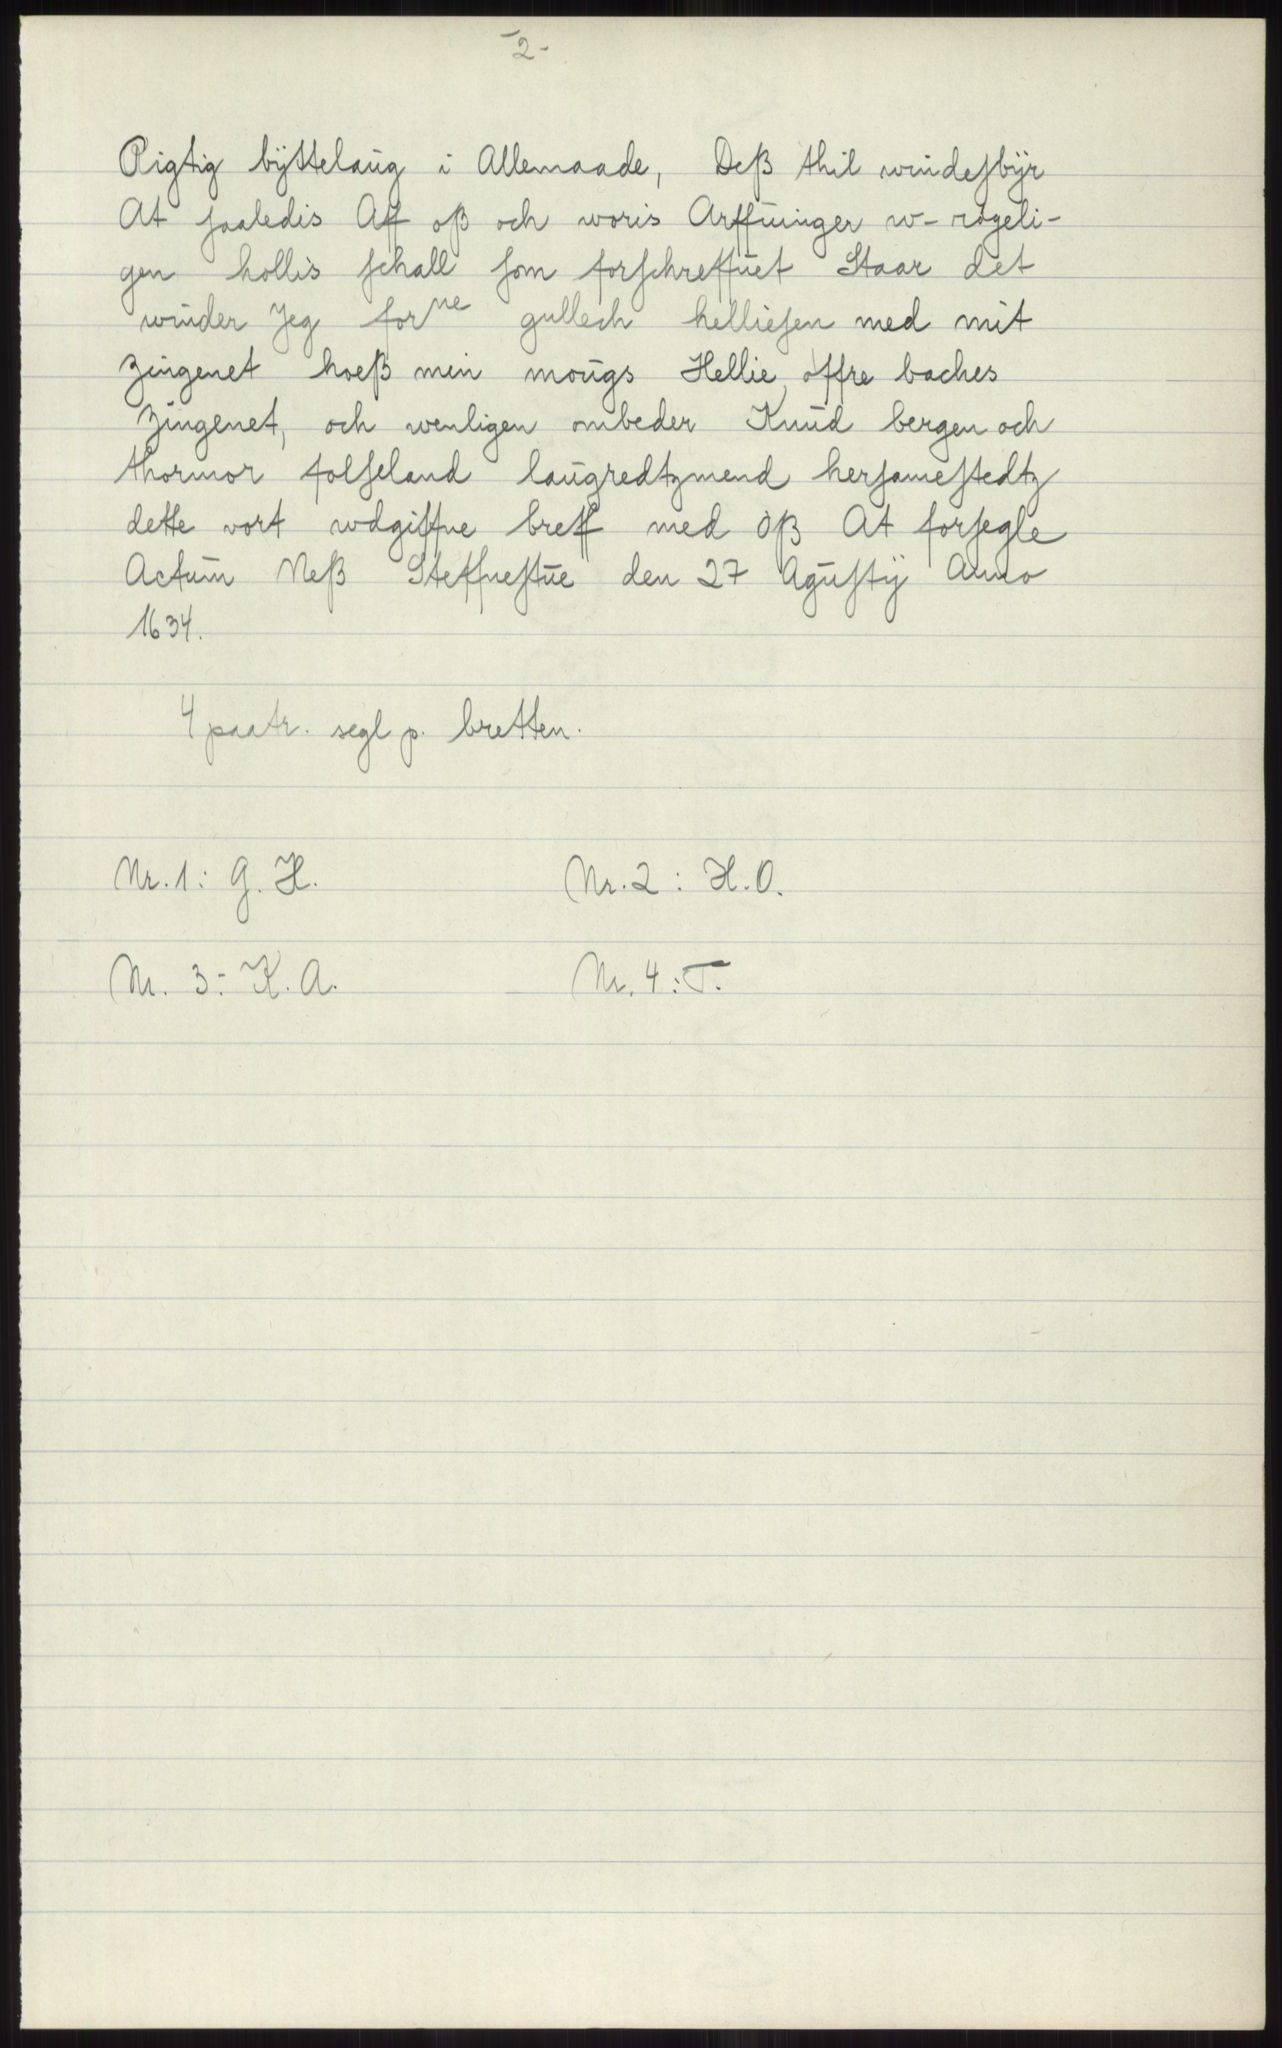 -2-
Rigtig bÿttelaug i Allemaade, Deß thil windeſbÿr
At ſaaledis Aff oß och woris Arffuinger w-rögeli-
gen hollis ſchall ſom forſchreffuet Staar det
winder Jeg for ne gullech hellieſen med mit
Zingenet hoeß min mougs Hellie offre baches
Zingenet, och wenligen ombeder Knud bergen och
thormor folſeland laugredtzmend herſameſtedtz
dette vort wdgiffne breff med Oß At forſegle
Actum Neß Steffneſtue den 27 Aguſtÿ Anno
1634.
4 paatr. segl p. bretten.
Nr. 1: G. H. Nr. 2: H. O.
Nr. 3: K. A. Nr. 4: T.